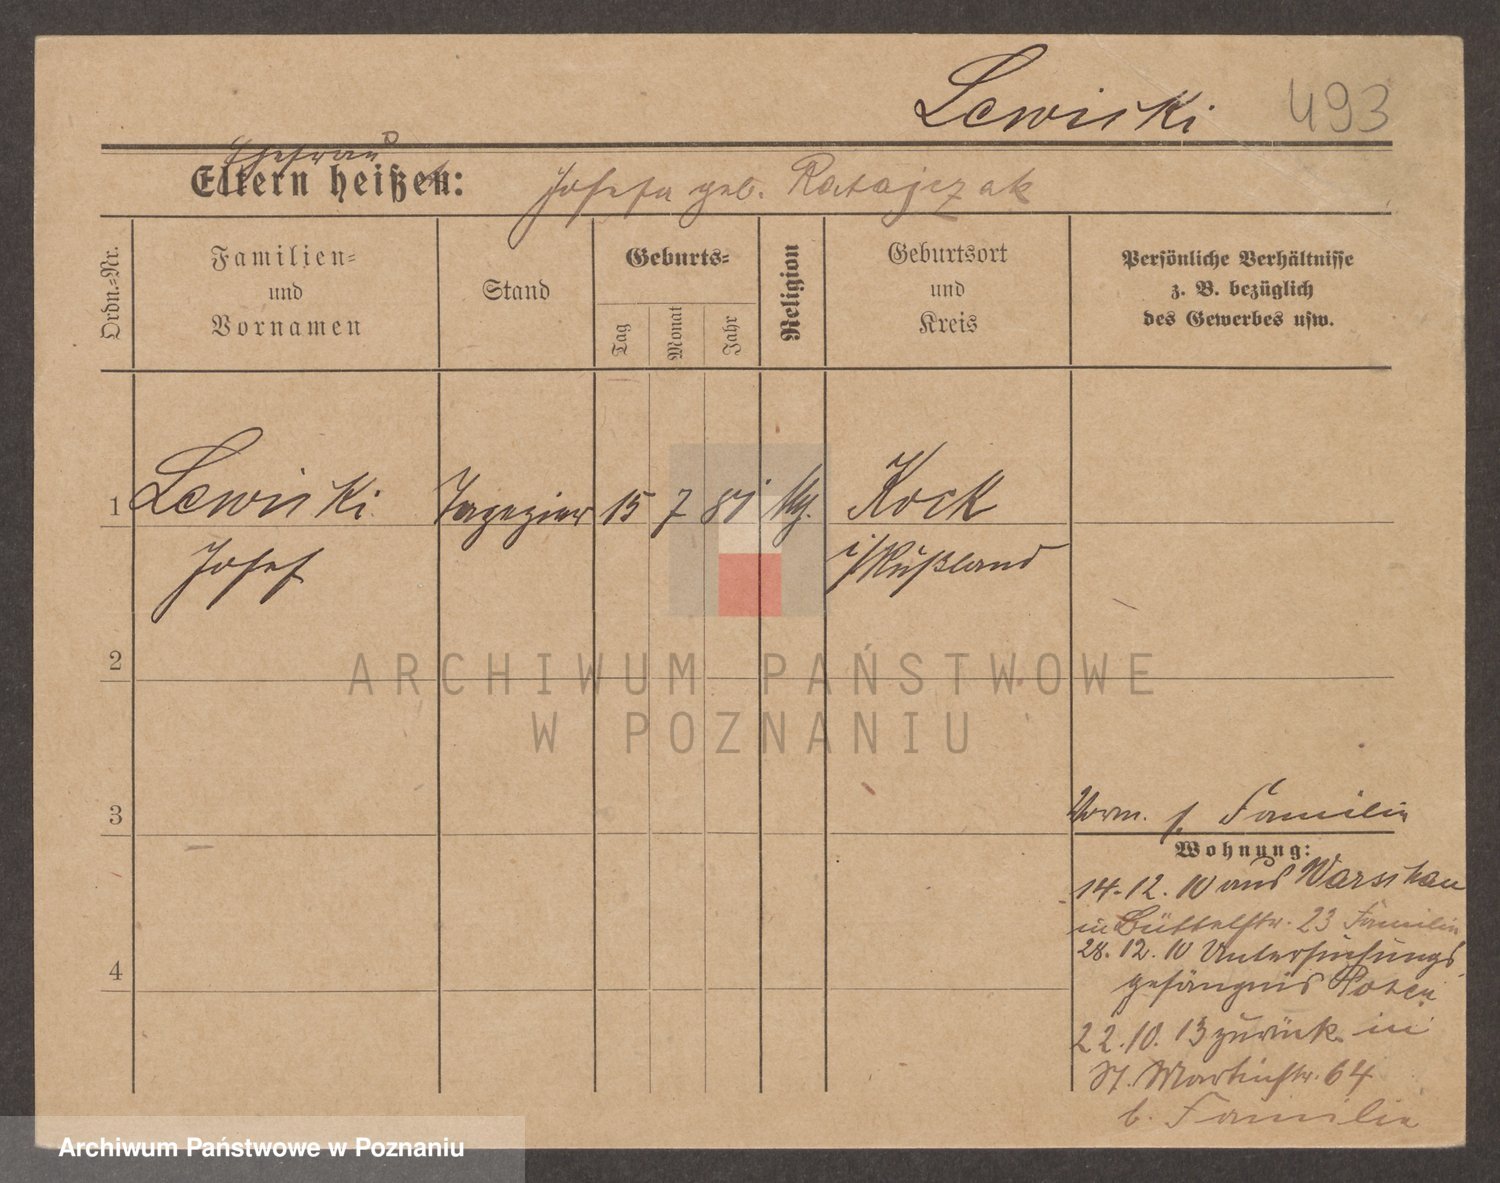 Lewiski 493
Ehefrau
Eltern heißen: Josefa geb. Ratajczak
Ordn.=Nr.
Familien=
und
Vornamen
Stand
Geburts=
Tag
Monat
Jahr
Religion
Geburtsort
und
Kreis
Persönliche Verhältnisse
z. B. bezüglich
des Gewerbes usw.
1 Lewiski 15 7 81 Kock
Josef i/Rußland
2
ARCHIWUM PAŃSTWOWE
W POZNANIU
3
Verm. s. Familie
Wohnung:
14.12.10 aus Warschau
in Büttelstr. 23 Familie
28.12.10 Untersuchungs
4
gefängnis Posen
22.10.13 zurück in
St. Martinstr. 64
b. Familie
Archiwum Państwowe w Poznaniu